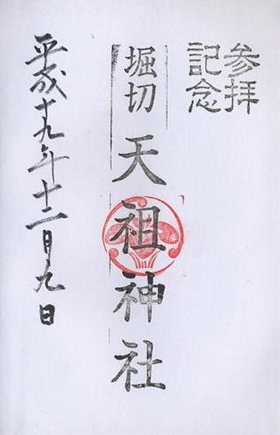 参拝
記念
堀切
天祖神社
平成十九年十二月九日